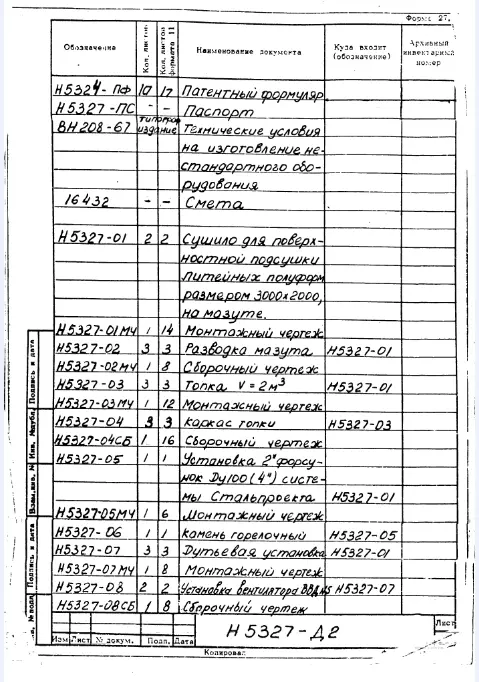 Форма 27.
Обозначение Кол. листов Кол. листов формата 11 Наименование документа Куда входит (обозначение) Архивный инвентарный номер
Н5327-ПФ 10 17 Патентный формуляр
Н5327-ПС - - Паспорт
ВН208-67 типограф. издание Технические условия
на изготовление не-
стандартного обо-
рудования
16432 - - Смета
Н5327-01 2 2 Сушило для поверх-
ностной подсушки
литейных полуформ
размером 3000x2000,
на мазуте.
Н5327-01МЧ 1 14 Монтажный чертеж
Н5327-02 3 3 Разводка мазута Н5327-01
Н5327-02МЧ 1 8 Сборочный чертеж
Н5327-03 3 3 Топка V=2м³ Н5327-01
Н5327-03МЧ 1 12 Монтажный чертеж
Н5327-04 3 3 Каркас топки Н5327-03
Н5327-04СБ 1 16 Сборочный чертеж
Н5327-05 1 1 Установка 2" форсу-
нок Ду100 (4") систе-
мы Стальпроекта Н5327-01
Н5327-05МЧ 1 6 Монтажный чертеж
Н5327-06 1 1 Камень горелочный Н5327-05
Н5327-07 3 3 Дутьевая установка Н5327-01
Н5327-07МЧ 1 8 Монтажный чертеж
Н5327-08 2 2 Установка вентилятора ВВД №5 Н5327-07
Н5327-08СБ 1 8 Сборочный чертеж
Изм Лист № докум. Подп. Дата
Н5327-Д2
Лист
Копировал
Подпись и дата
Инв. № дубл.
Взам. инв. №
Подпись и дата
№ подл.